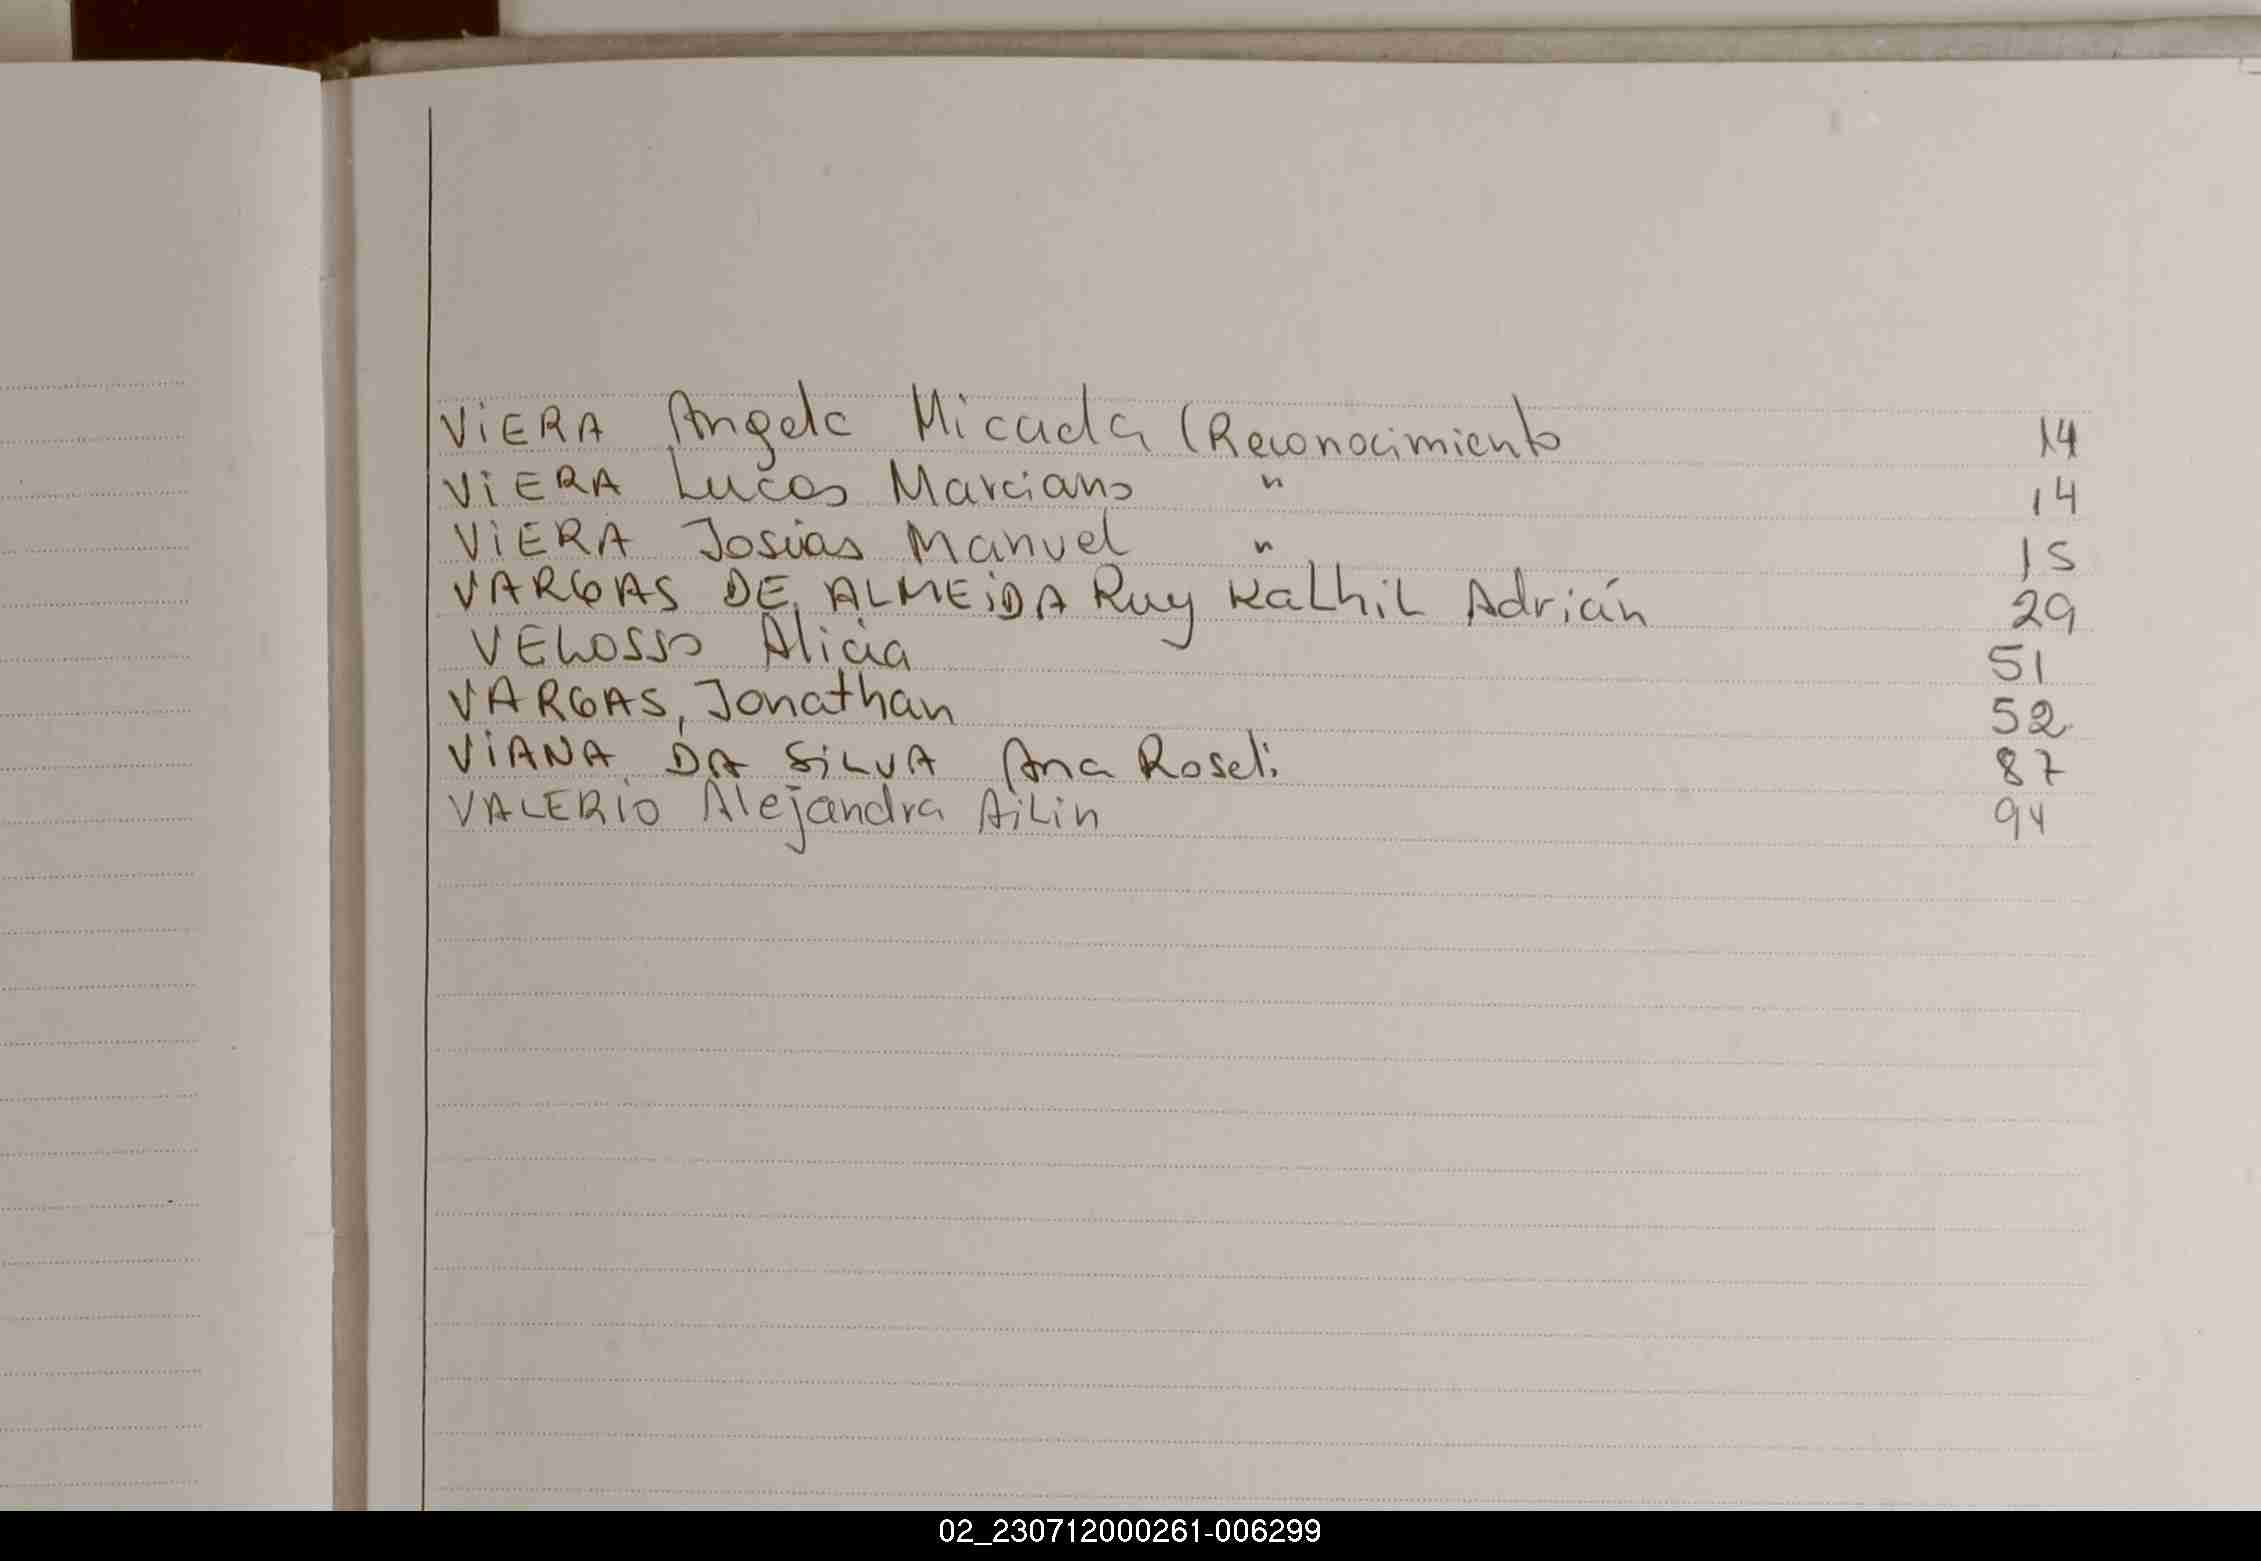 VIERA Angela Micaela (Reconocimiento 14
VIERA Lucas Marciano " 14
VIERA Josias Manuel " 15
VARGAS DE ALMEIDA Ruy Kalhil Adrián 29
VELOSSO Alicia 51
VARGAS, Jonathan 52
VIANA DA SILVA Ana Roseli 87
VALERIO Alejandra Ailin 94
02_230712000261-006299